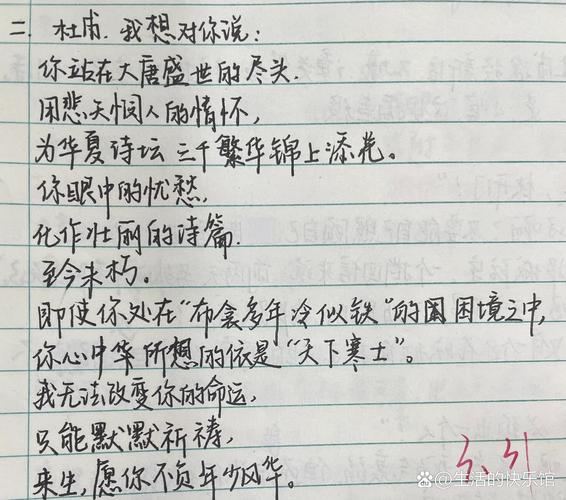 二、杜甫.我想对你说:
你站在大唐盛世的尽头.
用悲天悯人的情怀,
为华夏诗坛三千繁华锦上添花。
你眼中的忧愁,
化作壮丽的诗篇.
至今未朽。
即使你处在“布衾多年冷似铁”的困境之中,
你心中所想的依是“天下寒士”。
我无法改变你的命运,
只能默默祈祷,
来生,愿你不负年少风华。
3.31
@生活的快乐馆